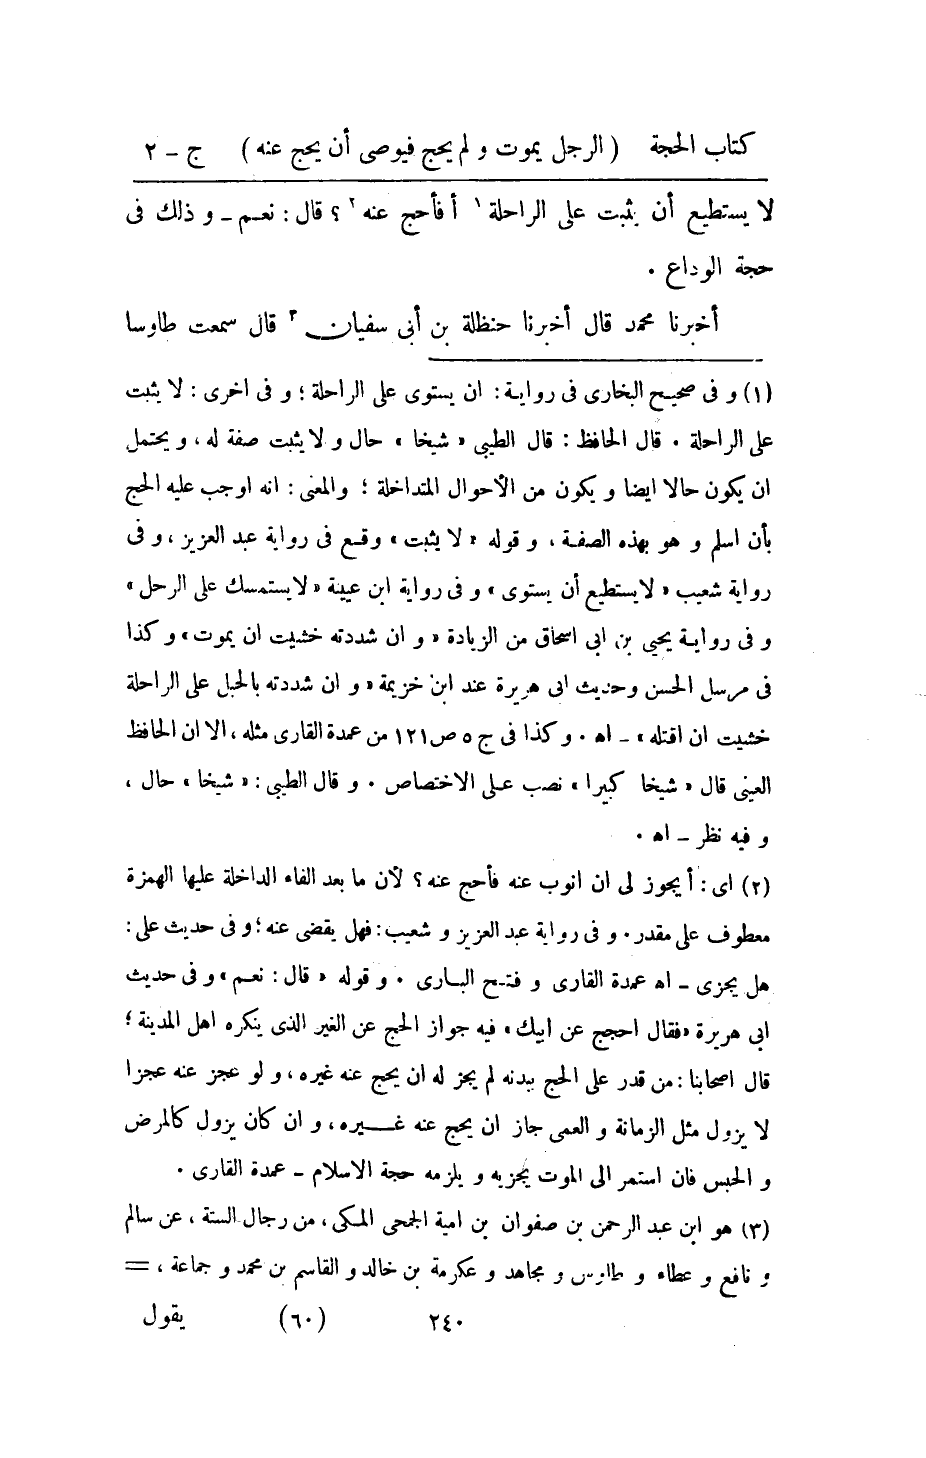 كتاب الحجة ( الرجل يموت و لم يحج فيوصى أن يحج عنه ) ج - ٢
لا يستطيع أن يثبت على الراحلة ١ أ فأحج عنه ٢ ؟ قال : نعم - و ذلك فى
حجة الوداع .
أخبرنا محمد قال أخبرنا حنظلة بن أبى سفيان ٣ قال سمعت طاوسا
(١) و فى صحيح البخارى فى رواية : ان يستوى على الراحلة ؛ و فى اخرى : لا يثبت
على الراحلة . قال الحافظ : قال الطيبى « شيخا » حال و لا يثبت صفة له ، و يحتمل
ان يكون حالا ايضا و يكون من الأحوال المتداخلة ؛ والمعنى : انه اوجب عليه الحج
بأن اسلم و هو بهذه الصفة ، و قوله « لا يثبت » وقع فى رواية عبد العزيز ، و فى
رواية شعيب « لايستطيع أن يستوى » و فى رواية ابن عيينة « لايستمسك على الرحل »
و فى رواية يحيى بن ابى اسحاق من الزيادة « و ان شددته خشيت ان يموت » و كذا
فى مرسل الحسن وحديث ابى هريرة عند ابن خزيمة « و ان شددته بالحبل على الراحلة
خشيت ان اقتله » - اه . و كذا فى ج ٥ ص ١٢١ من عمدة القارى مثله ، الا ان الحافظ
العينى قال « شيخا كبيرا » نصب على الاختصاص . و قال الطيبى : « شيخا » حال ،
و فيه نظر - اه .
(٢) اى : أ يجوز لى ان انوب عنه فأحج عنه ؟ لأن ما بعد الفاء الداخلة عليها الهمزة
معطوف على مقدر . و فى رواية عبد العزيز و شعيب : فهل يقضى عنه ؛ و فى حديث على :
هل يجزى - اه عمدة القارى و فتح البارى . و قوله « قال : نعم » و فى حديث
ابى هريرة « فقال احجج عن ابيك » فيه جواز الحج عن الغير الذى ينكره اهل المدينة ؛
قال اصحابنا : من قدر على الحج ببدنه لم يجز له ان يحج عنه غيره ، و لو عجز عنه عجزا
لا يزول مثل الزمانة و العمى جاز ان يحج عنه غيره ، و ان كان يزول كالمرض
و الحبس فان استمر الى الموت يجزيه و يلزمه حجة الاسلام - عمدة القارى .
(٣) هو ابن عبد الرحمن بن صفوان بن امية الجمحى المكى ، من رجال الستة ، عن سالم
و نافع و عطاء و طاوس و مجاهد و عكرمة بن خالد و القاسم بن محمد و جماعة ، =
٢٤٠ (٦٠) يقول